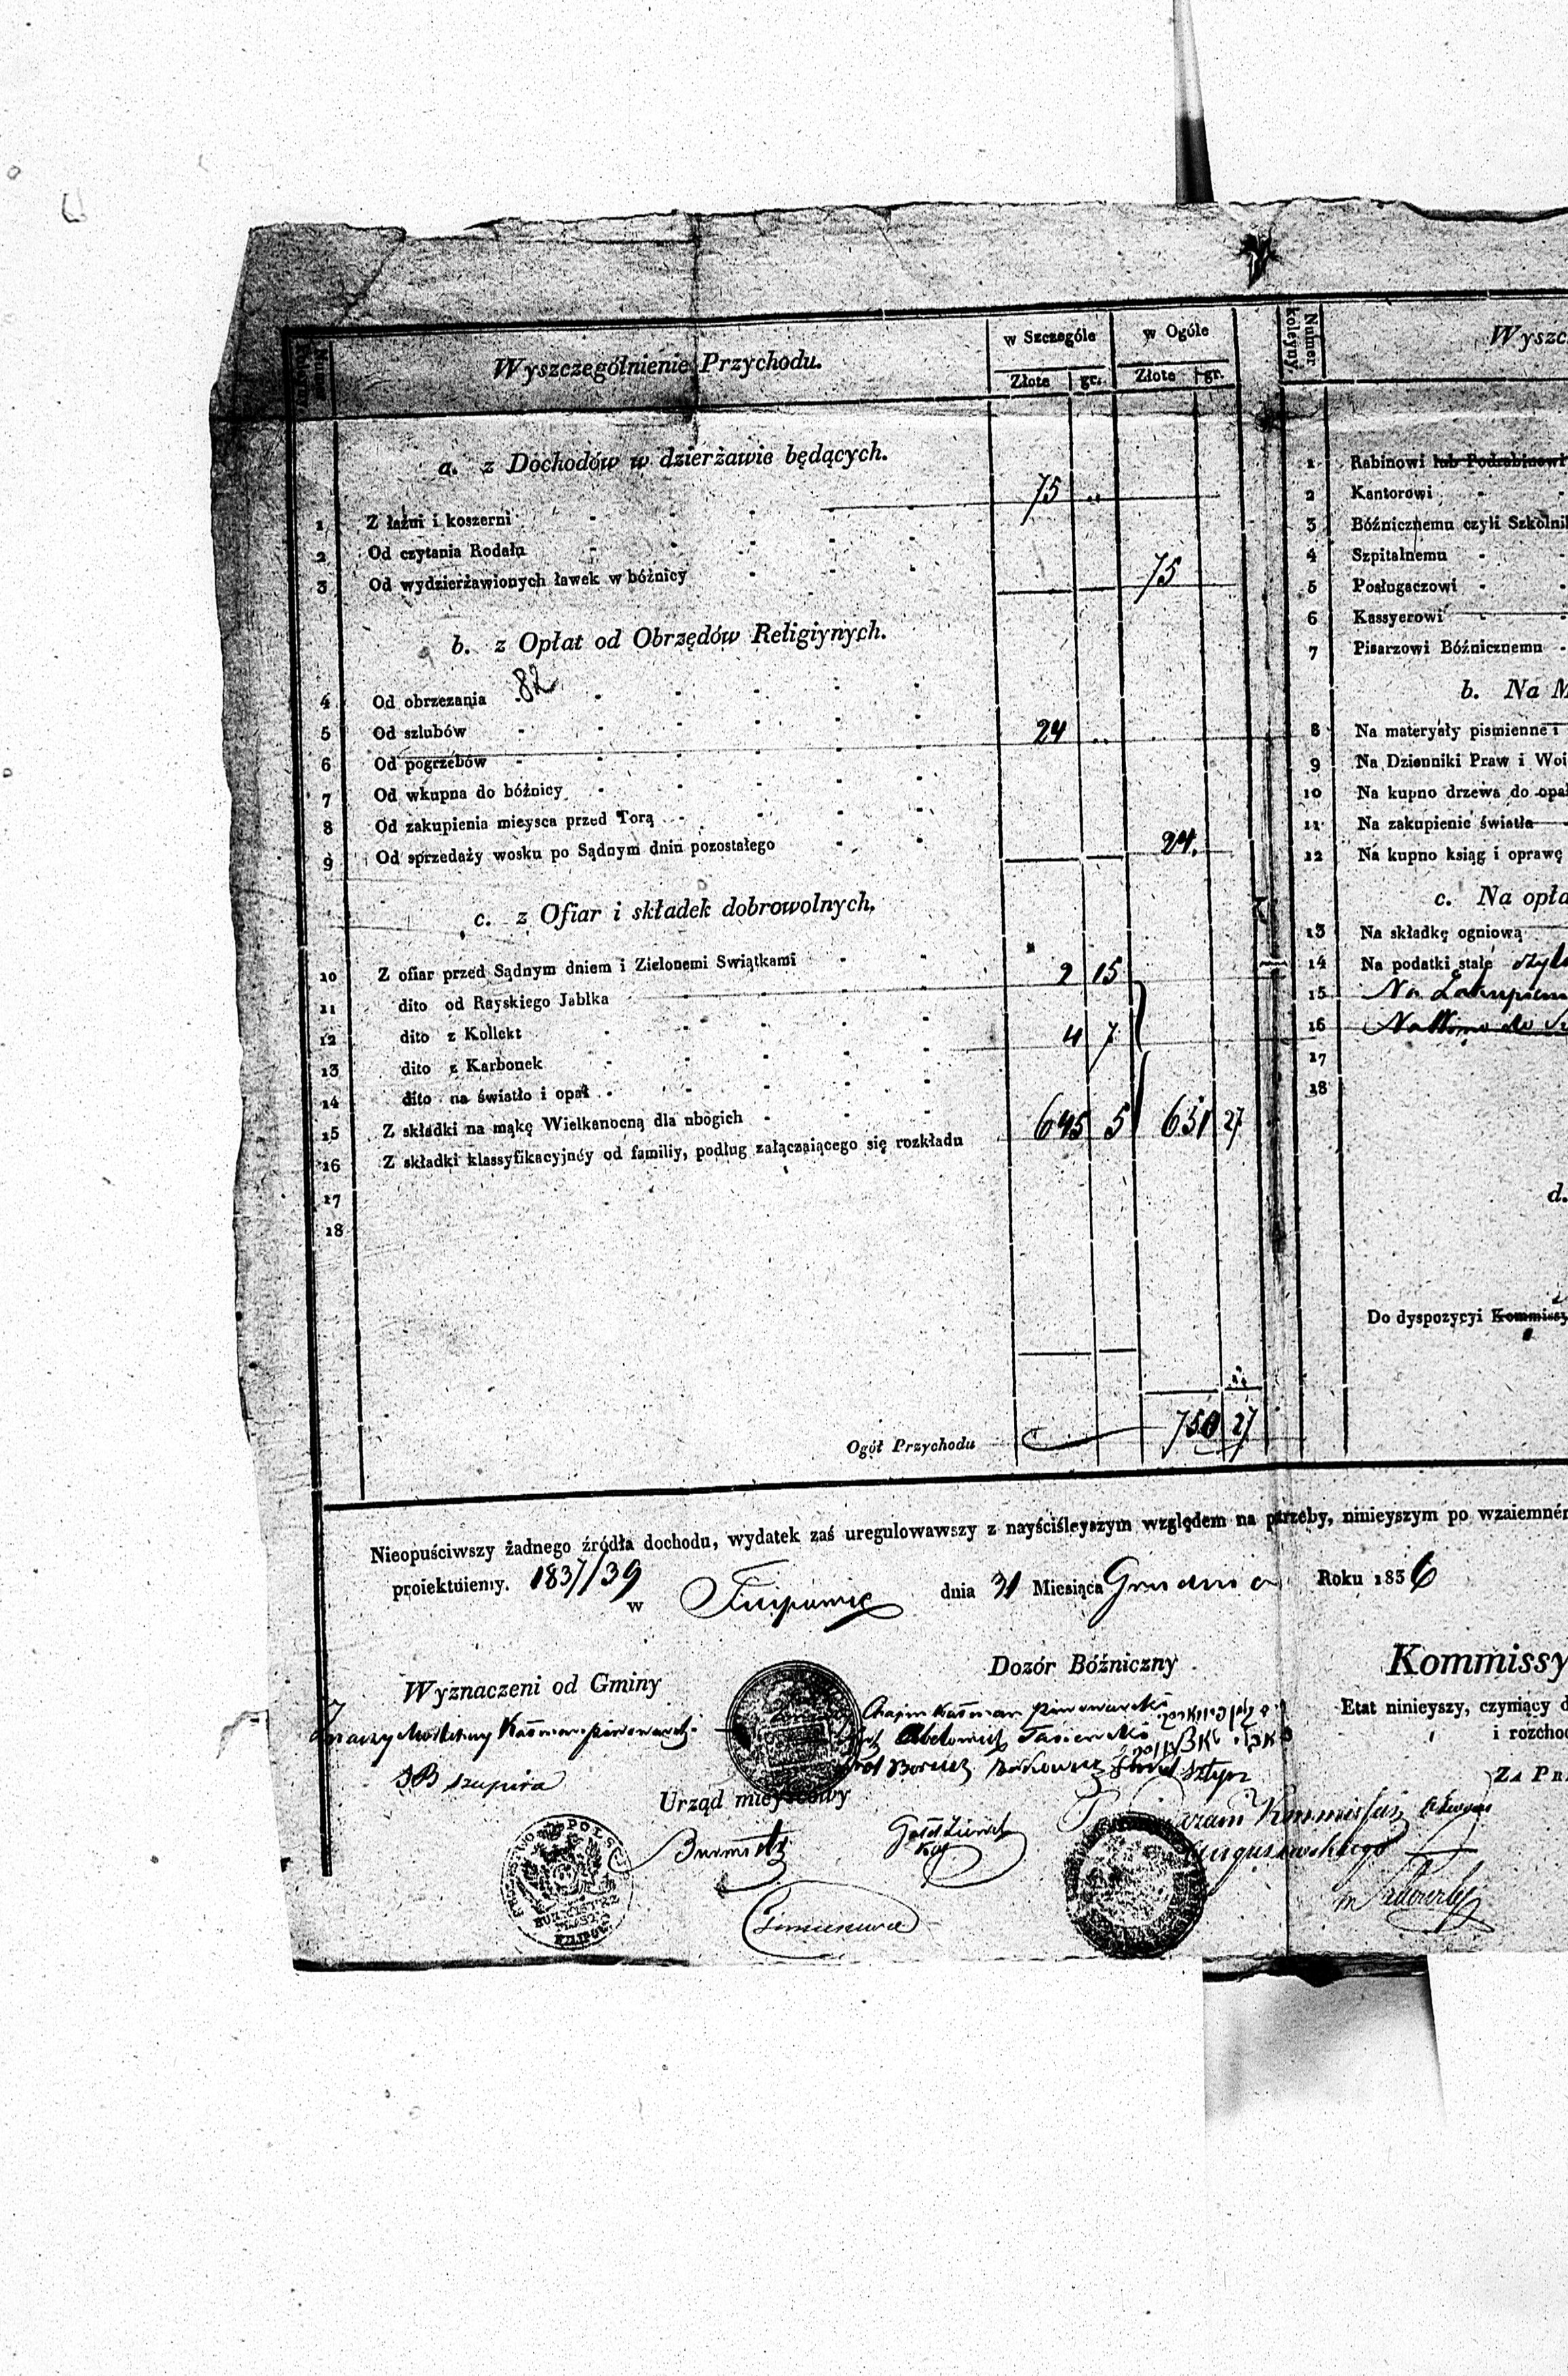 Numer kolejny.
Wyszczególnienie Przychodu.
w Szczególe
w Ogóle
Złote gr. Złote gr.
a. z Dochodów w dzierżawie będących.
1 Z łaźni i koszerni 75 „
2 Od czytania Rodału
3 Od wydzierżawionych ławek w bóżnicy 75
b. z Opłat od Obrzędów Religiynych.
4 Od obrzezania 82
5 Od szlubów 24 „
6 Od pogrzebów
7 Od wkupna do bóżnicy
8 Od zakupienia mieysca przed Torą
9 Od sprzedaży wosku po Sądnym dniu pozostałego 24.
c. z Ofiar i składek dobrowolnych.
10 Z ofiar przed Sądnym dniem i Zielonemi Swiątkami 2 15
11 dito od Rayskiego Jabłka
12 dito z Kollekt 4 7
13 dito z Karbonek
14 dito na światło i opał
15 Z składki na mąkę Wielkanocną dla ubogich 645 5 651 27
16 Z składki klassyfikacyjnéy od familiy, podług załączaiącego się rozkładu
17
18
Ogół Przychodu 750 27
Numer koleyny
Wyszc
1 Rabinowi lub Podrabinowi
2 Kantorowi
3 Bóźnicznemu czyli Szkolni
4 Szpitalnemu
5 Posługaczowi
6 Kassyerowi
7 Pisarzowi Bóźnicznemu
b. Na M
8 Na materyały pismienne i
9 Na Dzienniki Praw i Woi
10 Na kupno drzewa do opa
11 Na zakupienie światła
12 Na kupno ksiąg i oprawę
c. Na opła
13 Na składkę ogniową
14 Na podatki stałe
15 Na Zakupien
16 Na Wino do
17
18
d.
Do dyspozycyi Kommissy
Nieopuściwszy żadnego źródła dochodu, wydatek zaś uregulowawszy z nayściśleyszym względem na potrzeby, ninieyszym po wzaiemném
proiektuiemy. 1837/39 w Filipowie dnia 31 Miesiąca Grudnia Roku 1836
Wyznaczeni od Gminy
Dozór Bóźniczny
Kommissy
Etat ninieyszy, czyniący d
i rozcho
ZA PR
Chajm Kaśman Piwowarski
Kaśman Piwowarski
Abelowicz
SB Szapira
Urząd mieyscowy
Burmistrz